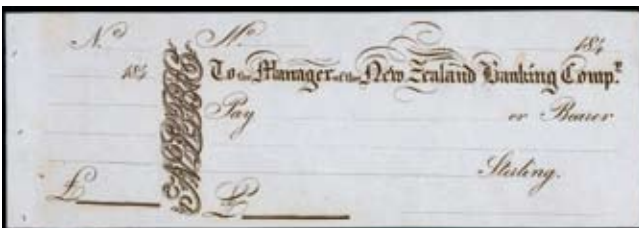 Nº
184
£
Nº
184
To the Manager of the New Zealand Banking Compy.
Pay or Bearer
Sterling.
£